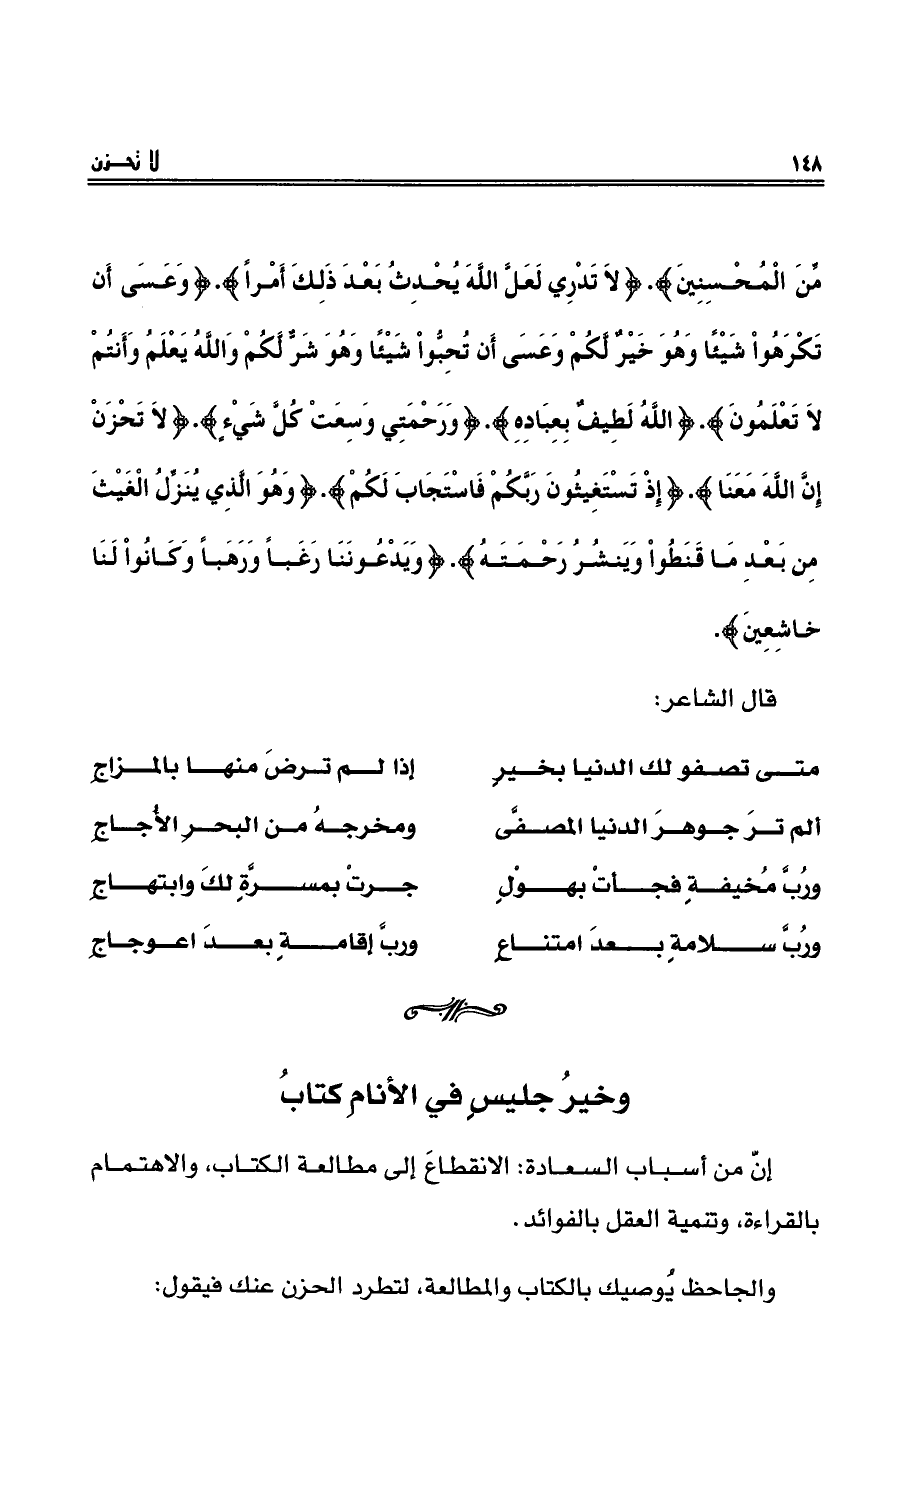 ١٤٨ لا تحـزن
مِّنَ الْمُحْسِنِينَ﴾. ﴿لاَ تَدْرِي لَعَلَّ اللَّهَ يُحْدِثُ بَعْدَ ذَلِكَ أَمْراً﴾. ﴿وَعَسَى أَن
تَكْرَهُواْ شَيْئًا وَهُوَ خَيْرٌ لَّكُمْ وَعَسَى أَن تُحِبُّواْ شَيْئًا وَهُوَ شَرٌّ لَّكُمْ وَاللَّهُ يَعْلَمُ وَأَنتُمْ
لاَ تَعْلَمُونَ﴾. ﴿اللَّهُ لَطِيفٌ بِعِبَادِهِ﴾. ﴿وَرَحْمَتِي وَسِعَتْ كُلَّ شَيْءٍ﴾. ﴿لاَ تَحْزَنْ
إِنَّ اللَّهَ مَعَنَا﴾. ﴿إِذْ تَسْتَغِيثُونَ رَبَّكُمْ فَاسْتَجَابَ لَكُمْ﴾. ﴿وَهُوَ الَّذِي يُنَزِّلُ الْغَيْثَ
مِن بَعْدِ مَا قَنَطُواْ وَيَنشُرُ رَحْمَتَهُ﴾. ﴿وَيَدْعُونَنَا رَغَباً وَرَهَباً وَكَانُواْ لَنَا
خَاشِعِينَ﴾.
قال الشاعر:
متى تصفو لك الدنيا بخيرٍ إذا لم ترضَ منها بالمزاجِ
ألم ترَ جوهرَ الدنيا المصفَّى ومخرجهُ من البحرِ الأُجاجِ
ورُبَّ مُخيفةٍ فجأتْ بهولٍ جرتْ بمسرَّةٍ لكَ وابتهاجِ
ورُبَّ سلامةٍ بعدَ امتناعٍ وربَّ إقامةٍ بعدَ اعوجاجِ
وخيرُ جليسٍ في الأنامِ كتابُ
إنّ من أسباب السعادة: الانقطاعَ إلى مطالعة الكتاب، والاهتمام
بالقراءة، وتنمية العقل بالفوائد.
والجاحظ يُوصيك بالكتاب والمطالعة، لتطرد الحزن عنك فيقول: